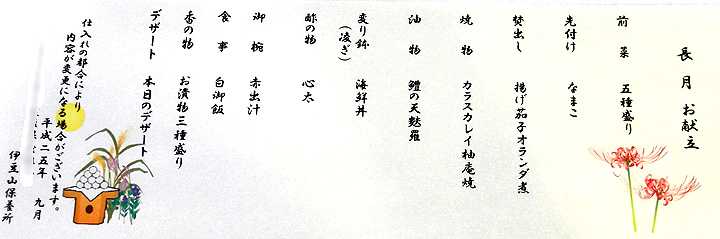 長月 お献立
前菜 五種盛り
先付け なまこ
焚出し 揚げ茄子オランダ煮
焼物 カラスカレイ柚庵焼
油物 鱧の天麩羅
変り鉢 海鮮丼
(凌ぎ)
酢の物 心太
御椀 赤出汁
食事 白御飯
香の物 お漬物三種盛り
デザート 本日のデザート
仕入れの都合により
内容が変更になる場合がございます。
平成二五年 九月
伊豆山保養所